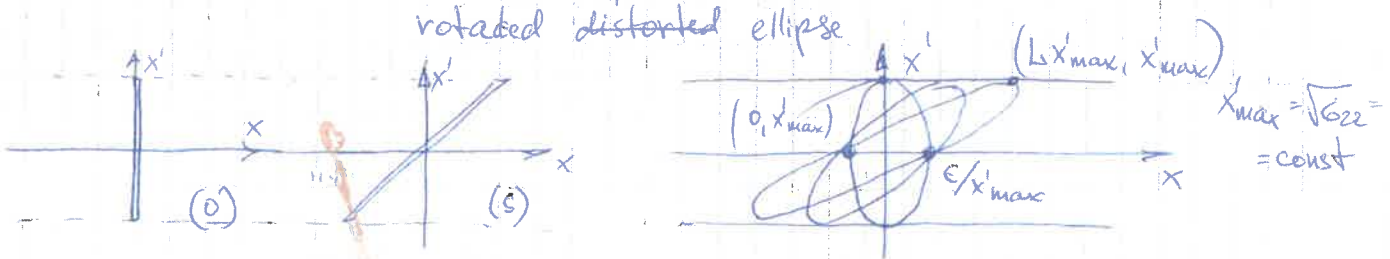 rotated distorted ellipse
x'
x
(0)
x'
x
(S)
x'
(L x'max, x'max)
(0, x'max)
ϵ/x'max
x
x'max = √σ22 =
= const